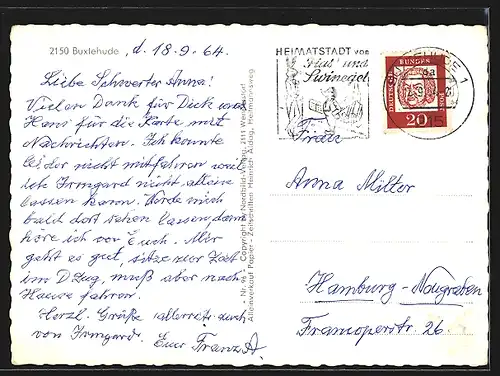 2150 Buxtehude, d. 18.9.64.
Liebe Schwester Anna!
Vielen Dank für Dick und
Hans für die Karte mit
Nachrichten. Ich konnte
leider nicht mitfahren weil
ich Irmgard nicht alleine
lassen kann. Werde mich
bald dort sehen lassen, dann
höre ich von Euch. Mir
geht es gut, sitze zur Zeit
im D Zug, muß aber nach
Hause fahren.
Herzl. Grüße allerseits auch
von Irmgard. Euer Franz A.
Copyright by Nordbild-Verlag, 2111 Wenzendorf
Alleinverkauf Papier - Zeitschriften Heinrich Aldag, Heitmannsweg
HEIMATSTADT von
Has' und
Swinegel
DEUTSCHE BUNDESPOST
20
Frau
Anna Mitter
Hamburg-Neugraben
Francoperstr. 26.